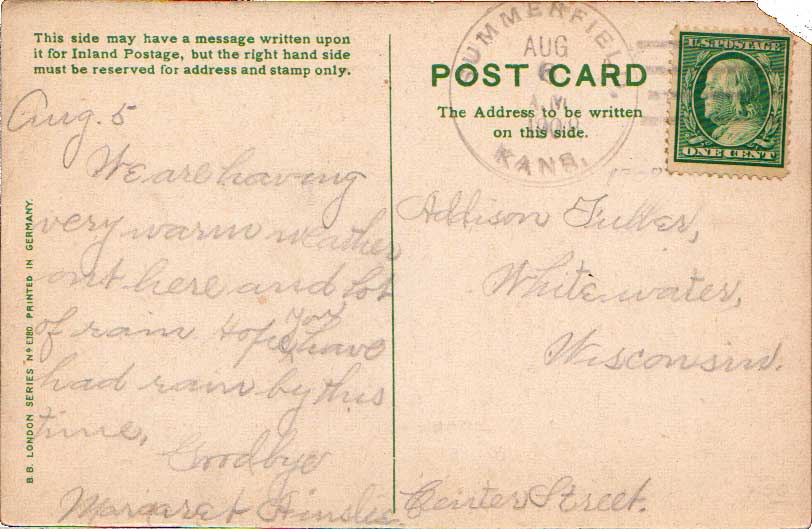 This side may have a message written upon
it for Inland Postage, but the right hand side
must be reserved for address and stamp only.
Aug. 5
We are having
very warm weather
out here and lot
of rain Hope you have
had rain by this
time.
Goodbye
Margaret Ainslie
B.B. LONDON SERIES No E180. PRINTED IN GERMANY.
SUMMERFIELD,
AUG
6
A.M.
KANS.
POST CARD
The Address to be written
on this side.
U.S. POSTAGE
ONE CENT
Addison Fuller,
Whitewater,
Wisconsin.
Center Street.